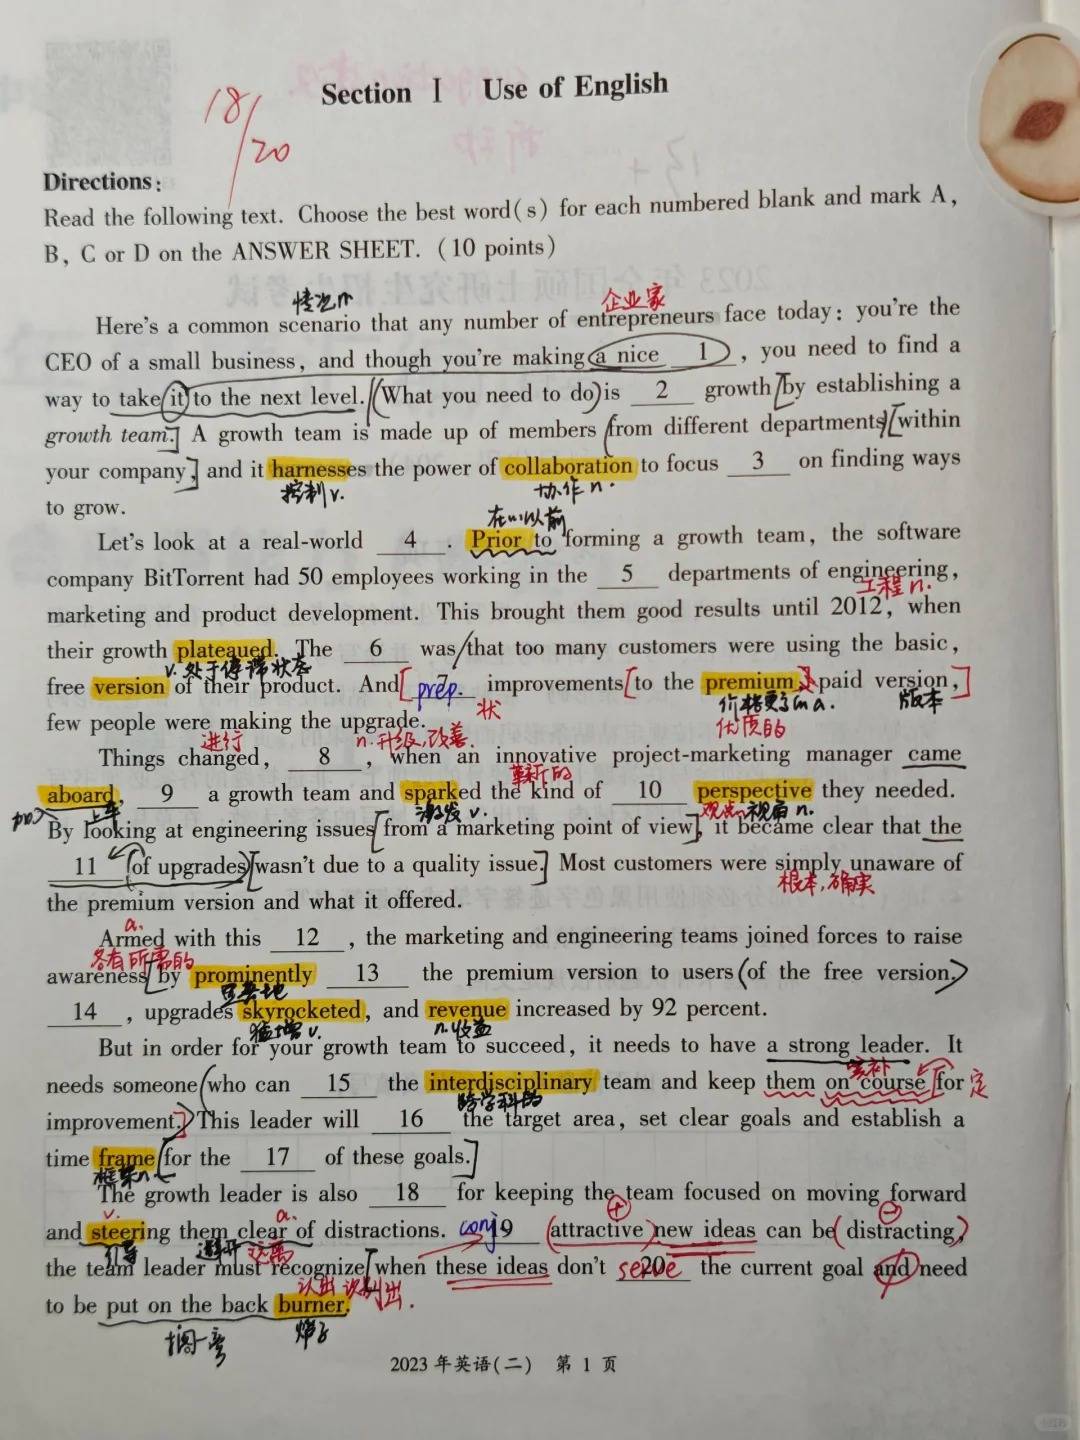 Section Ⅰ Use of English
18/20
Directions:
Read the following text. Choose the best word(s) for each numbered blank and mark A,
B, C or D on the ANSWER SHEET. (10 points)
情况 n 企业家
Here's a common scenario that any number of entrepreneurs face today: you're the
CEO of a small business, and though you're making a nice 1 , you need to find a
way to take it to the next level. What you need to do is 2 growth by establishing a
growth team. A growth team is made up of members from different departments within
your company, and it harnesses the power of collaboration to focus 3 on finding ways
控制 v. 协作 n.
to grow.
在…以前
Let's look at a real-world 4 . Prior to forming a growth team, the software
company BitTorrent had 50 employees working in the 5 departments of engineering,
工程 n.
marketing and product development. This brought them good results until 2012, when
their growth plateaued. The 6 was that too many customers were using the basic,
v. 处于停滞状态
free version of their product. And 7 improvements to the premium, paid version,
prep. 状 价格更高的 a. 版本
few people were making the upgrade.
进行 n. 升级,改善. 优质的
Things changed, 8 , when an innovative project-marketing manager came
革新的
aboard, 9 a growth team and sparked the kind of 10 perspective they needed.
加入 上车 激发 v. 观点 视角 n.
By looking at engineering issues from a marketing point of view, it became clear that the
11 of upgrades wasn't due to a quality issue. Most customers were simply unaware of
根本,确实
the premium version and what it offered.
a.
Armed with this 12 , the marketing and engineering teams joined forces to raise
各有所需的
awareness by prominently 13 the premium version to users of the free version.
显著地
14 , upgrades skyrocketed, and revenue increased by 92 percent.
猛增 v. n. 收益
But in order for your growth team to succeed, it needs to have a strong leader. It
needs someone who can 15 the interdisciplinary team and keep them on course for
跨学科的 宾补 定
improvement. This leader will 16 the target area, set clear goals and establish a
time frame for the 17 of these goals.
框架 n.
The growth leader is also 18 for keeping the team focused on moving forward
v. a.
and steering them clear of distractions. 19 attractive new ideas can be distracting,
引导 避开 远离 conj
the team leader must recognize when these ideas don't 20 the current goal and need
serve
认出 识别出.
to be put on the back burner.
搁一旁 炉子
2023 年英语(二) 第 1 页